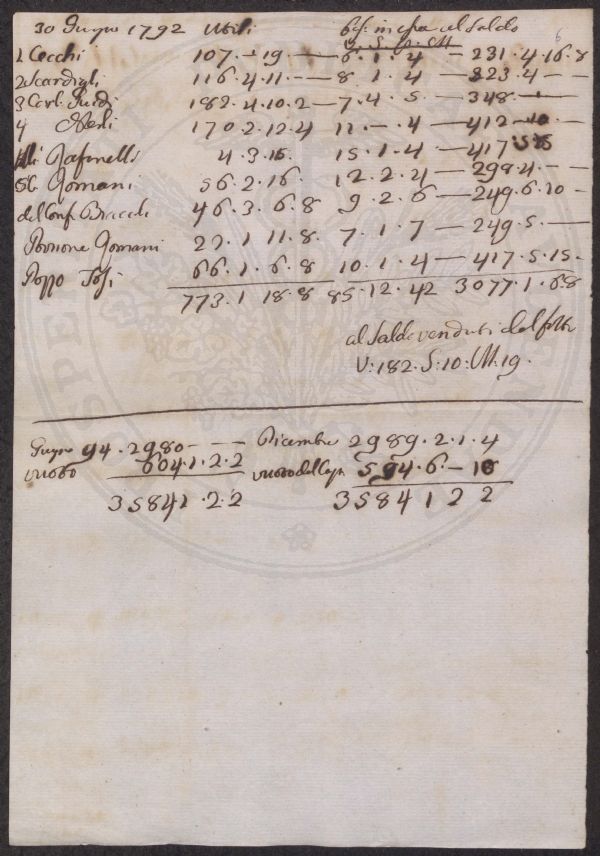 30 Giugno 1792 Utili al Saldo 6
V. S. M
1 Cecchi 107. - 19 - - 6. 1. 4 - 231. 4. 16. 8
2 Scardigli 116. 4. 11. - - 8. 1. 4 - 323. 4 - -
3 182. 4. 10. 2 - 7. 4. 5. - 348. - -
4 170. 2. 12. 4 11. - . 4 - 412 - 10. -
4. 3. 15. 15. 1. 4 - 417
Gomani 56. 2. 16. 12. 2. 4 - 299. 4. - -
del Conf. Bracchi 46. 3. 6. 8 9. 2. 6 - 249. 6. 10 -
Gomani 22. 1 11. 8. 7. 1. 7 - 249. 5. - -
Pozzo Tosi 66. 1. 6. 8 10. 1. 4 - 417. 5. 15.
773. 1 18. 8 85. 12. 42 3077. 1. 68
al Saldo venduti
V: 182. S: 10: M. 19.
Giugno 94. 2980 - - - Dicembre 2989. 2. 1. 4
604. 1. 2. 2 594. 6. - 18
35841. 2. 2 3584 1 2 2